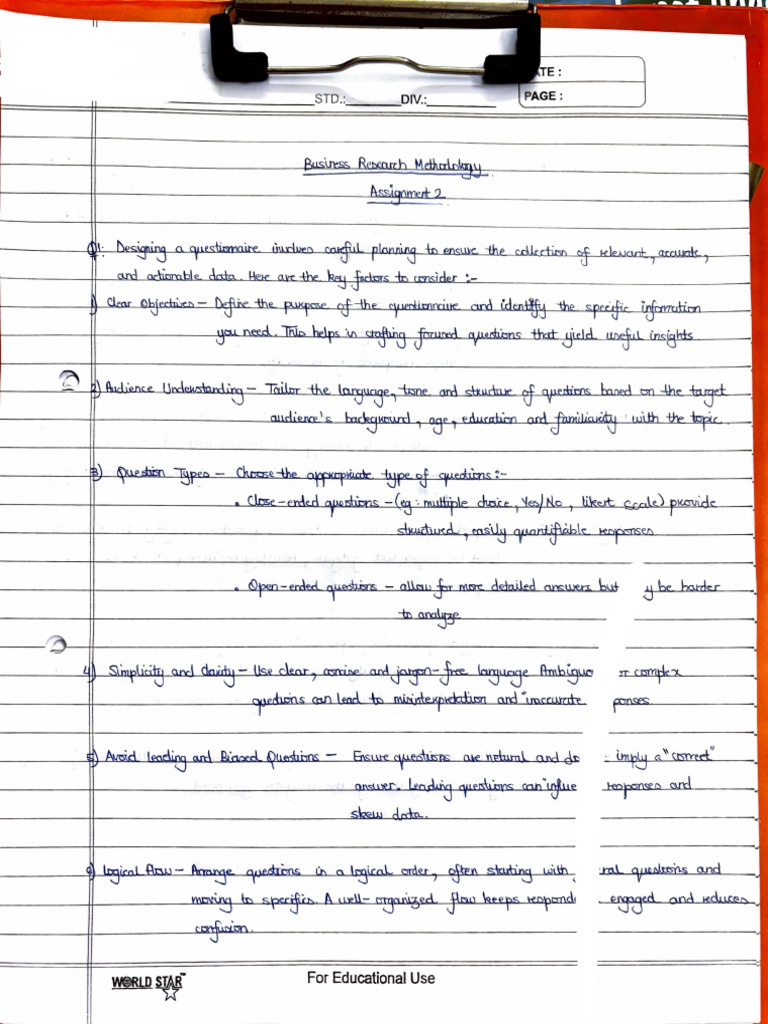 DATE :
STD.: DIV.:
PAGE :
Business Research Methodology
Assignment 2
Q1. Designing a questionnaire involves careful planning to ensure the collection of relevant, accurate,
and actionable data. Here are the key factors to consider :-
1) Clear Objectives – Define the purpose of the questionnaire and identify the specific information
you need. This helps in crafting focused questions that yield useful insights.
2) Audience Understanding – Tailor the language, tone and structure of questions based on the target
audience's background, age, education and familiarity with the topic.
3) Question Types – Choose the appropriate type of questions :-
• Close-ended questions – (eg : multiple choice, Yes/No, likert scale) provide
structured, easily quantifiable responses
• Open-ended questions – allow for more detailed answers but y be harder
to analyze
4) Simplicity and clarity – Use clear, concise and jargon-free language Ambiguo r complex
questions can lead to misinterpretation and inaccurate ponses.
5) Avoid Leading and Biased Questions – Ensure questions are natural and do imply a "correct"
answer. Leading questions can influe responses and
skew data.
6) Logical flow – Arrange questions in a logical order, often starting with ral questions and
moving to specifics. A well-organized flow keeps respond engaged and reduces
confusion.
WORLD STAR™
For Educational Use